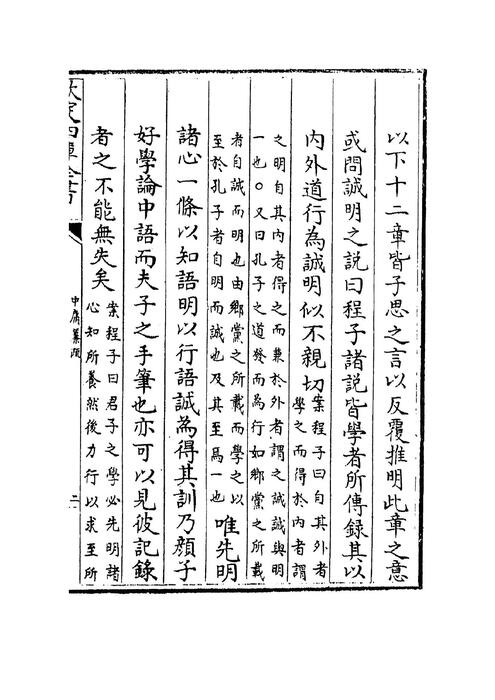 以下十二章皆子思之言以反覆推明此章之意
或問誠明之說曰程子諸說皆學者所傳錄其以
內外道行為誠明似不親切
案程子曰自其外者
學之而得於內者謂
之明自其內者得之而兼於外者謂之誠誠與明
一也○又曰孔子之道發而為行如鄉黨之所載
者自誠而明也由鄉黨之所載而學之以
至於孔子者自明而誠也及其至焉一也
唯先明
諸心一條以知語明以行語誠為得其訓乃顏子
好學論中語而夫子之手筆也亦可以見彼記錄
者之不能無失矣
案程子曰君子之學必先明諸
心知所養然後力行以求至所
欽定四庫全書
中庸纂疏
二